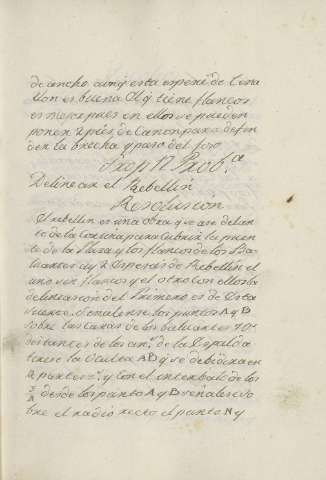 de ancho aunq. esta espesie de tena
llon es buena El q. tiene flancos
es mejor pues en ellos se pueden
poner 2 pies. de Canon para defen
der la brecha y paso del foso
Prop. 17 Prob.a
Delinear el Rebellin
Resolusion
El rebellin es una obra que ase delan
te de la Cortina para Cubrir la puen
te de la Plaza y los flancos de los Ba
luartes ay 2 Espesies de Rebellin el
uno sin flancos y el otro con ellos la
delineasion del Primero es de esta
suerte. Señalense los puntos A y B
sobre las caras de los baluartes 10.
distantes de los an.s de la Espalda
tirese la oculta AB q. se debidira en
partes y. y con el interbalo de los
desde los puntos A y B señalese so
bre el radio recto el punto N y